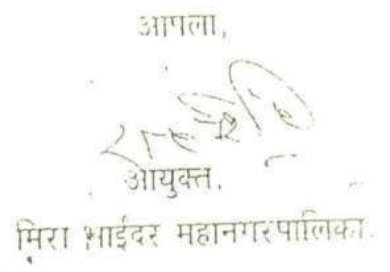 आपला,
आयुक्त,
मिरा भाईंदर महानगरपालिका.